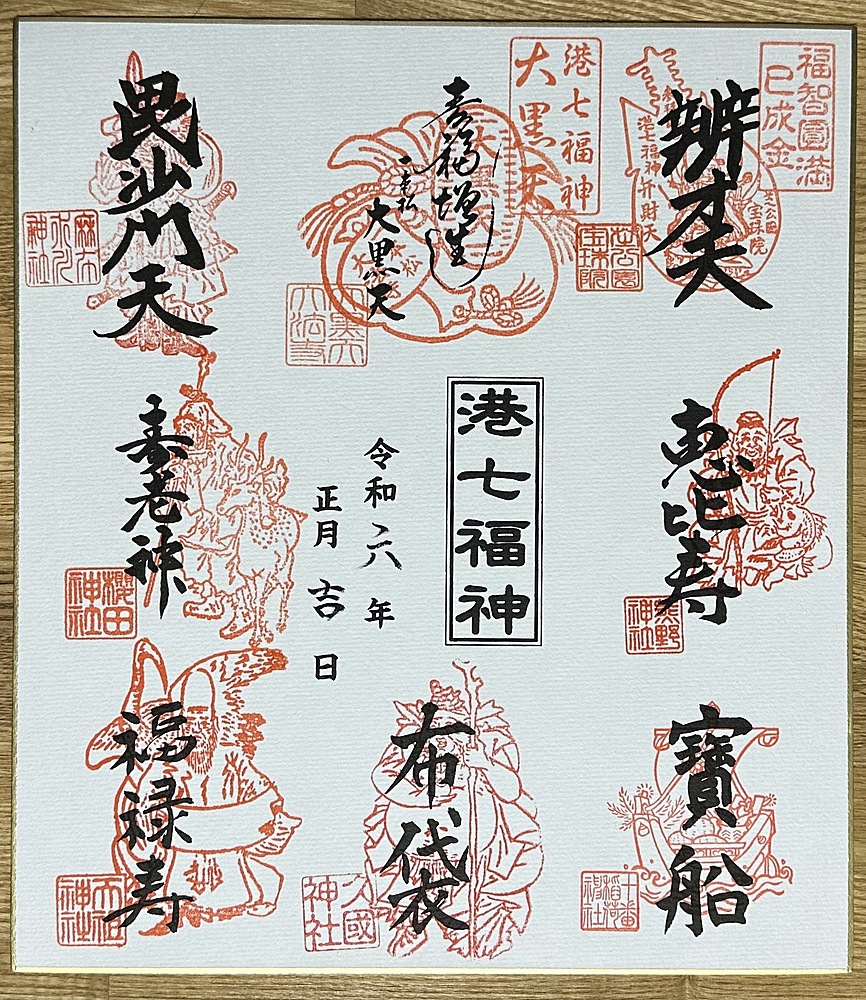 福智圓満
巳成金
辨才天
港七福神弁財天
芝公園
宝珠院
芝公園
宝珠院
港七福神
大黒天
壽福増生
大黒天
大黒天
大法寺
毘沙門天
麻布
氷川
神社
恵比寿
熊野
神社
港七福神
令和六年
正月吉日
寿老神
櫻田
神社
寳船
十番
稲荷
神社
布袋
久國
神社
福禄寿
天祖
神社